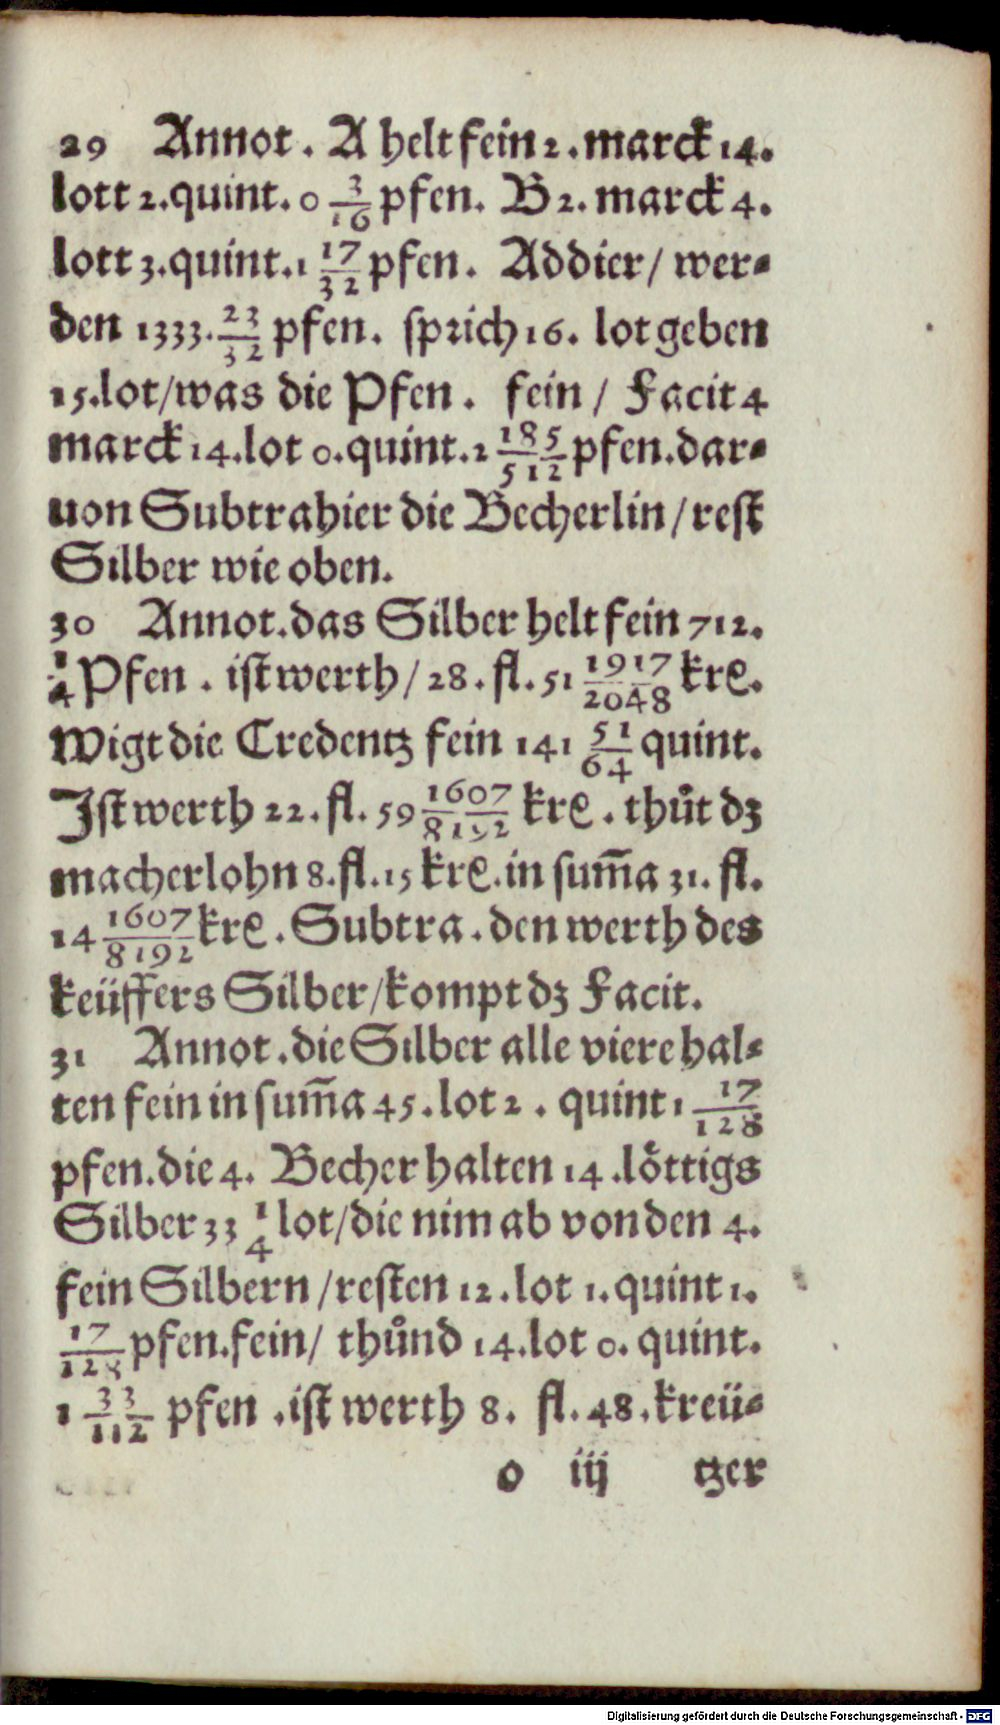 29 Annot. A helt fein 2. marck 14.
lott 2. quint. 0 3/16 pfen. B 2. marck 4.
lott 3. quint. 1 17/32 pfen. Addier/ wer-
den 1333. 23/32 pfen. sprich 16. lot geben
15. lot/ was die Pfen. fein/ Facit 4
marck 14. lot 0. quint. 2 185/512 pfen. dar-
uon Subtrahier die Becherlin/ rest
Silber wie oben.
30 Annot. das Silber helt fein 712.
1/4 Pfen. ist werth/ 28. fl. 51 1917/2048 krꝭ.
Wigt die Credentz fein 141 51/64 quint.
Ist werth 22. fl. 59 1607/8192 krꝭ. thuͦt dz
macherlohn 8. fl. 15 krꝭ. in sum̃a 31. fl.
14 1607/8192 krꝭ. Subtra. den werth des
keüffers Silber/ kompt dz Facit.
31 Annot. die Silber alle viere hal-
ten fein in sum̃a 45. lot 2. quint 1 17/128
pfen. die 4. Becher halten 14. loͤttigs
Silber 33 1/4 lot/ die nim ab von den 4.
fein Silbern/ resten 12. lot 1. quint 1.
17/128 pfen. fein/ thuͦnd 14. lot 0. quint.
1 33/112 pfen. ist werth 8. fl. 48. kreü-
o iij tzer
Digitalisierung gefördert durch die Deutsche Forschungsgemeinschaft - DFG